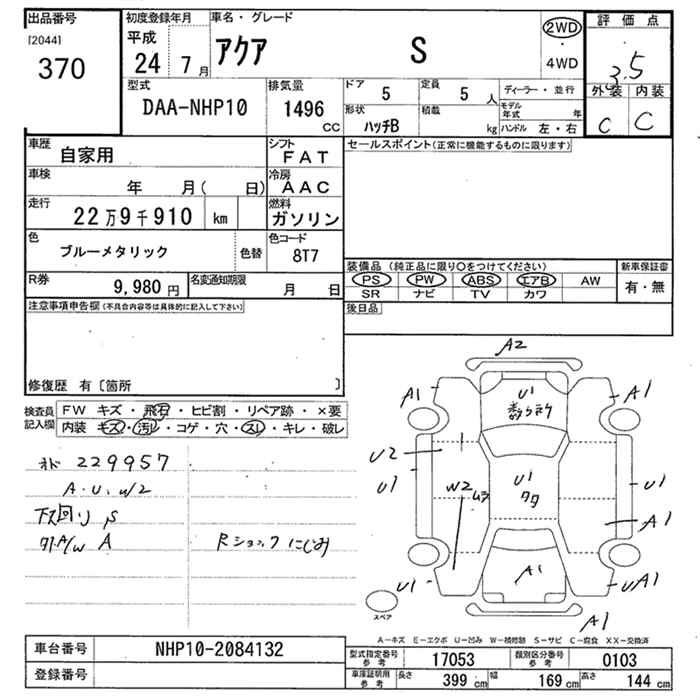 出品番号
[2044]
370
初度登録年月
平成
24 7月
車名・グレード
アクア S
2WD
・
4WD
評価点
3.5
外装 内装
C C
型式
DAA-NHP10
排気量
1496 CC
ドア 5
定員 5 人
ディーラー・並行
モデル年式 年
形状 ハッチB
積載 kg
ハンドル 左・右
車歴 自家用
シフト FAT
車検 年 月( 日)
冷房 AAC
走行 22万9千910 km
燃料 ガソリン
色 ブルーメタリック 色替
色コード 8T7
R券 9,980円
名変通知期限 月 日
セールスポイント(正常に機能するものに限ります)
装備品 (純正品に限り○をつけてください)
新車保証書
PS PW ABS エアB AW
SR ナビ TV カワ
有・無
後日品
注意事項申告欄(不具合内容等は具体的に記入して下さい)
修復歴 有〔箇所 〕
検査員記入欄
FW キズ・飛石・ヒビ割・リペア跡・×要
内装 キズ・汚レ・コゲ・穴・スレ・キレ・破レ
229957
A・U・W2
下回り S
A/W A
Rショックにじみ
A2
A1
U1
A1
U2
U1
W2
U1
U1
A1
A1
U1
UA1
A1
スペア
A－キズ E－エクボ U－凹み W－補修跡 S－サビ C－腐食 XX－交換済
車台番号 NHP10-2084132
登録番号
型式指定番号 参考 17053
類別区分番号 参考 0103
車庫証明用 参考 長さ 399 cm 幅 169 cm 高さ 144 cm